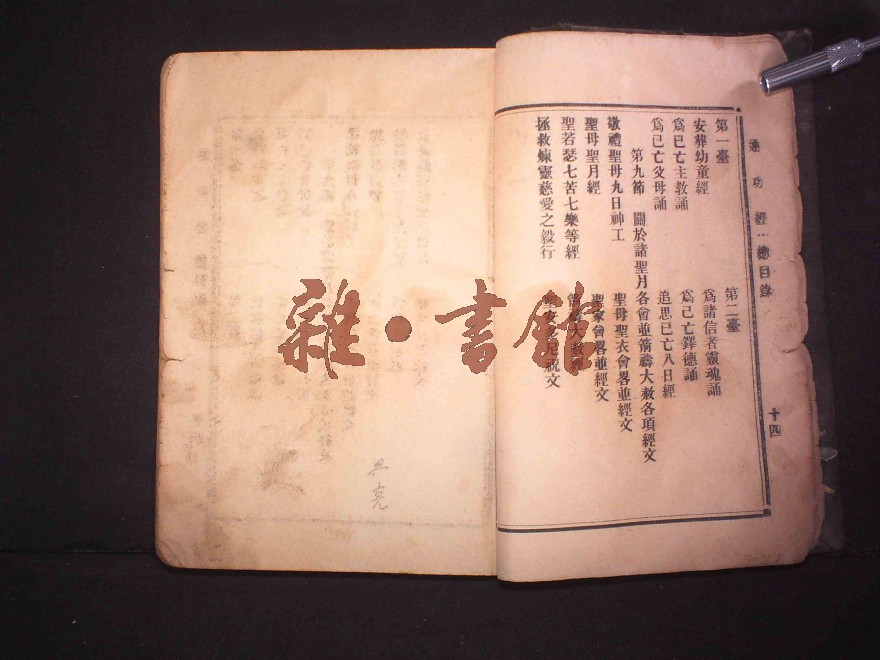 通功經⋯總目錄
十四
第一臺
第二臺
安葬幼童經
為諸信者靈魂誦
為已亡主教誦
為已亡鐸德誦
為已亡父母誦
追思已亡八日經
第九節 關於諸聖月各會並箭禱大赦各項經文
敬禮聖母九日神工
聖母聖衣會畧並經文
聖母聖月經
聖家會畧並經文
聖若瑟七苦七樂等經
拯救煉靈慈愛之毅行
雜·書館